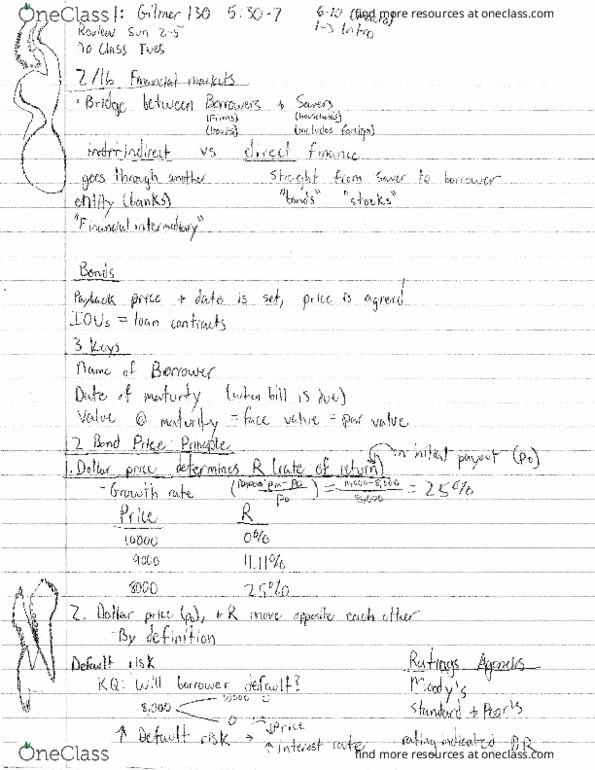 OneClass 1: Gilmer 130 5:30-7
find more resources at oneclass.com
6-10
1-3 Intro
Review Sun 2-5
No Class Tues
2/16 Financial markets
· Bridge between Borrowers + Savers
(Firms) (households)
(includes foreign)
indirect vs direct finance
goes through another straight from saver to borrower
entity (banks) "bonds" "stocks"
"Financial intermediary"
Bonds
Payback price + date is set, price is agreed
IOUs = loan contracts
3 Keys
Name of Borrower
Date of maturity (when bill is due)
Value @ maturity = face value = par value
2 Bond Price Principle
1. Dollar price determines R (rate of return) on initial payout (p₀)
- Growth rate = 25%
Price R
10000 0%
9000 11.11%
8000 25%
2. Dollar price (p₀), + R move opposite each other
- By definition
Default risk Ratings Agencies
KQ: Will borrower default? Moody's
8,000 0 Standard + Poor's
↑ Default risk → ↓Price
↑ interest rate rating indicated DR
OneClass find more resources at oneclass.com